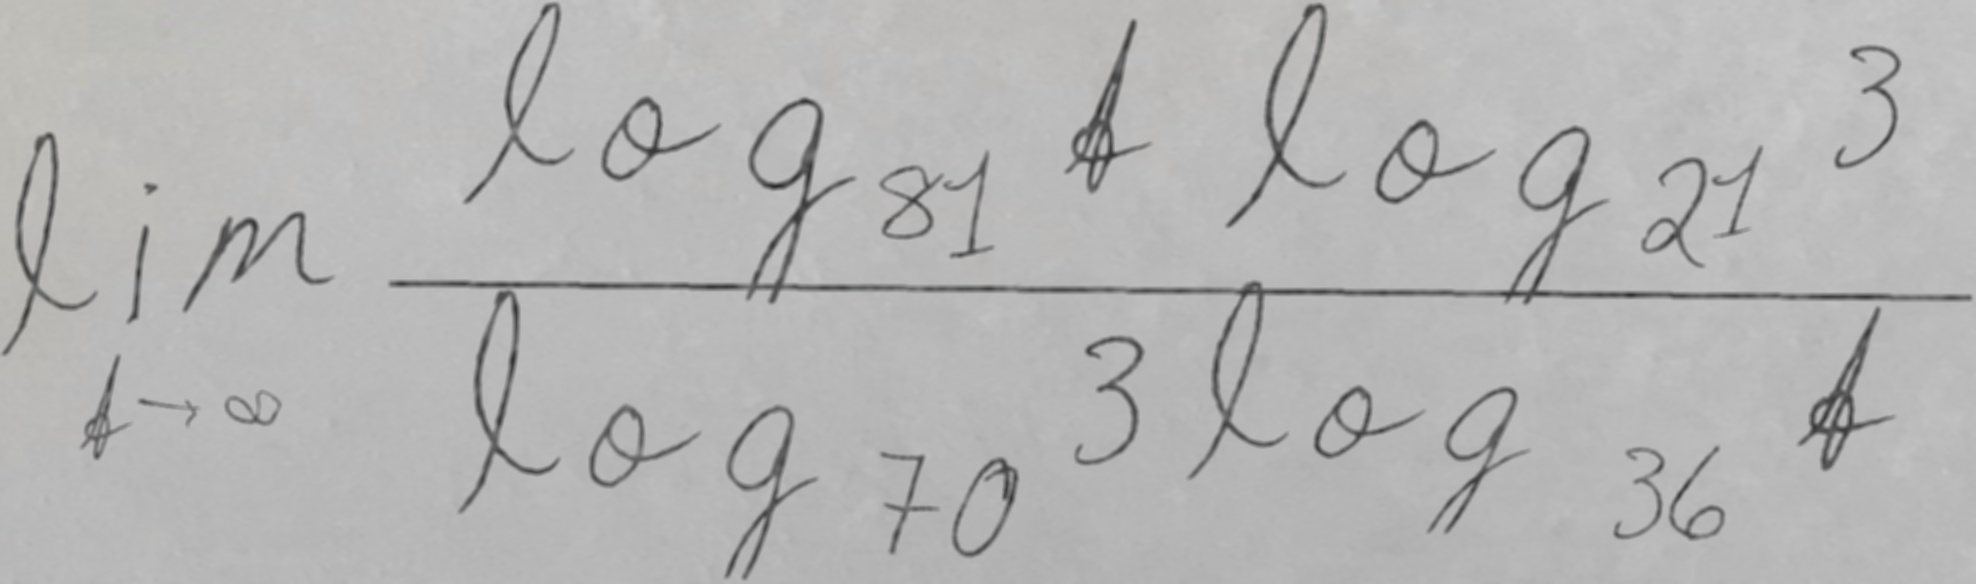 \lim_{t \to \infty} \frac{\log_{81} t \log_{21} 3}{\log_{70} 3 \log_{36} t}